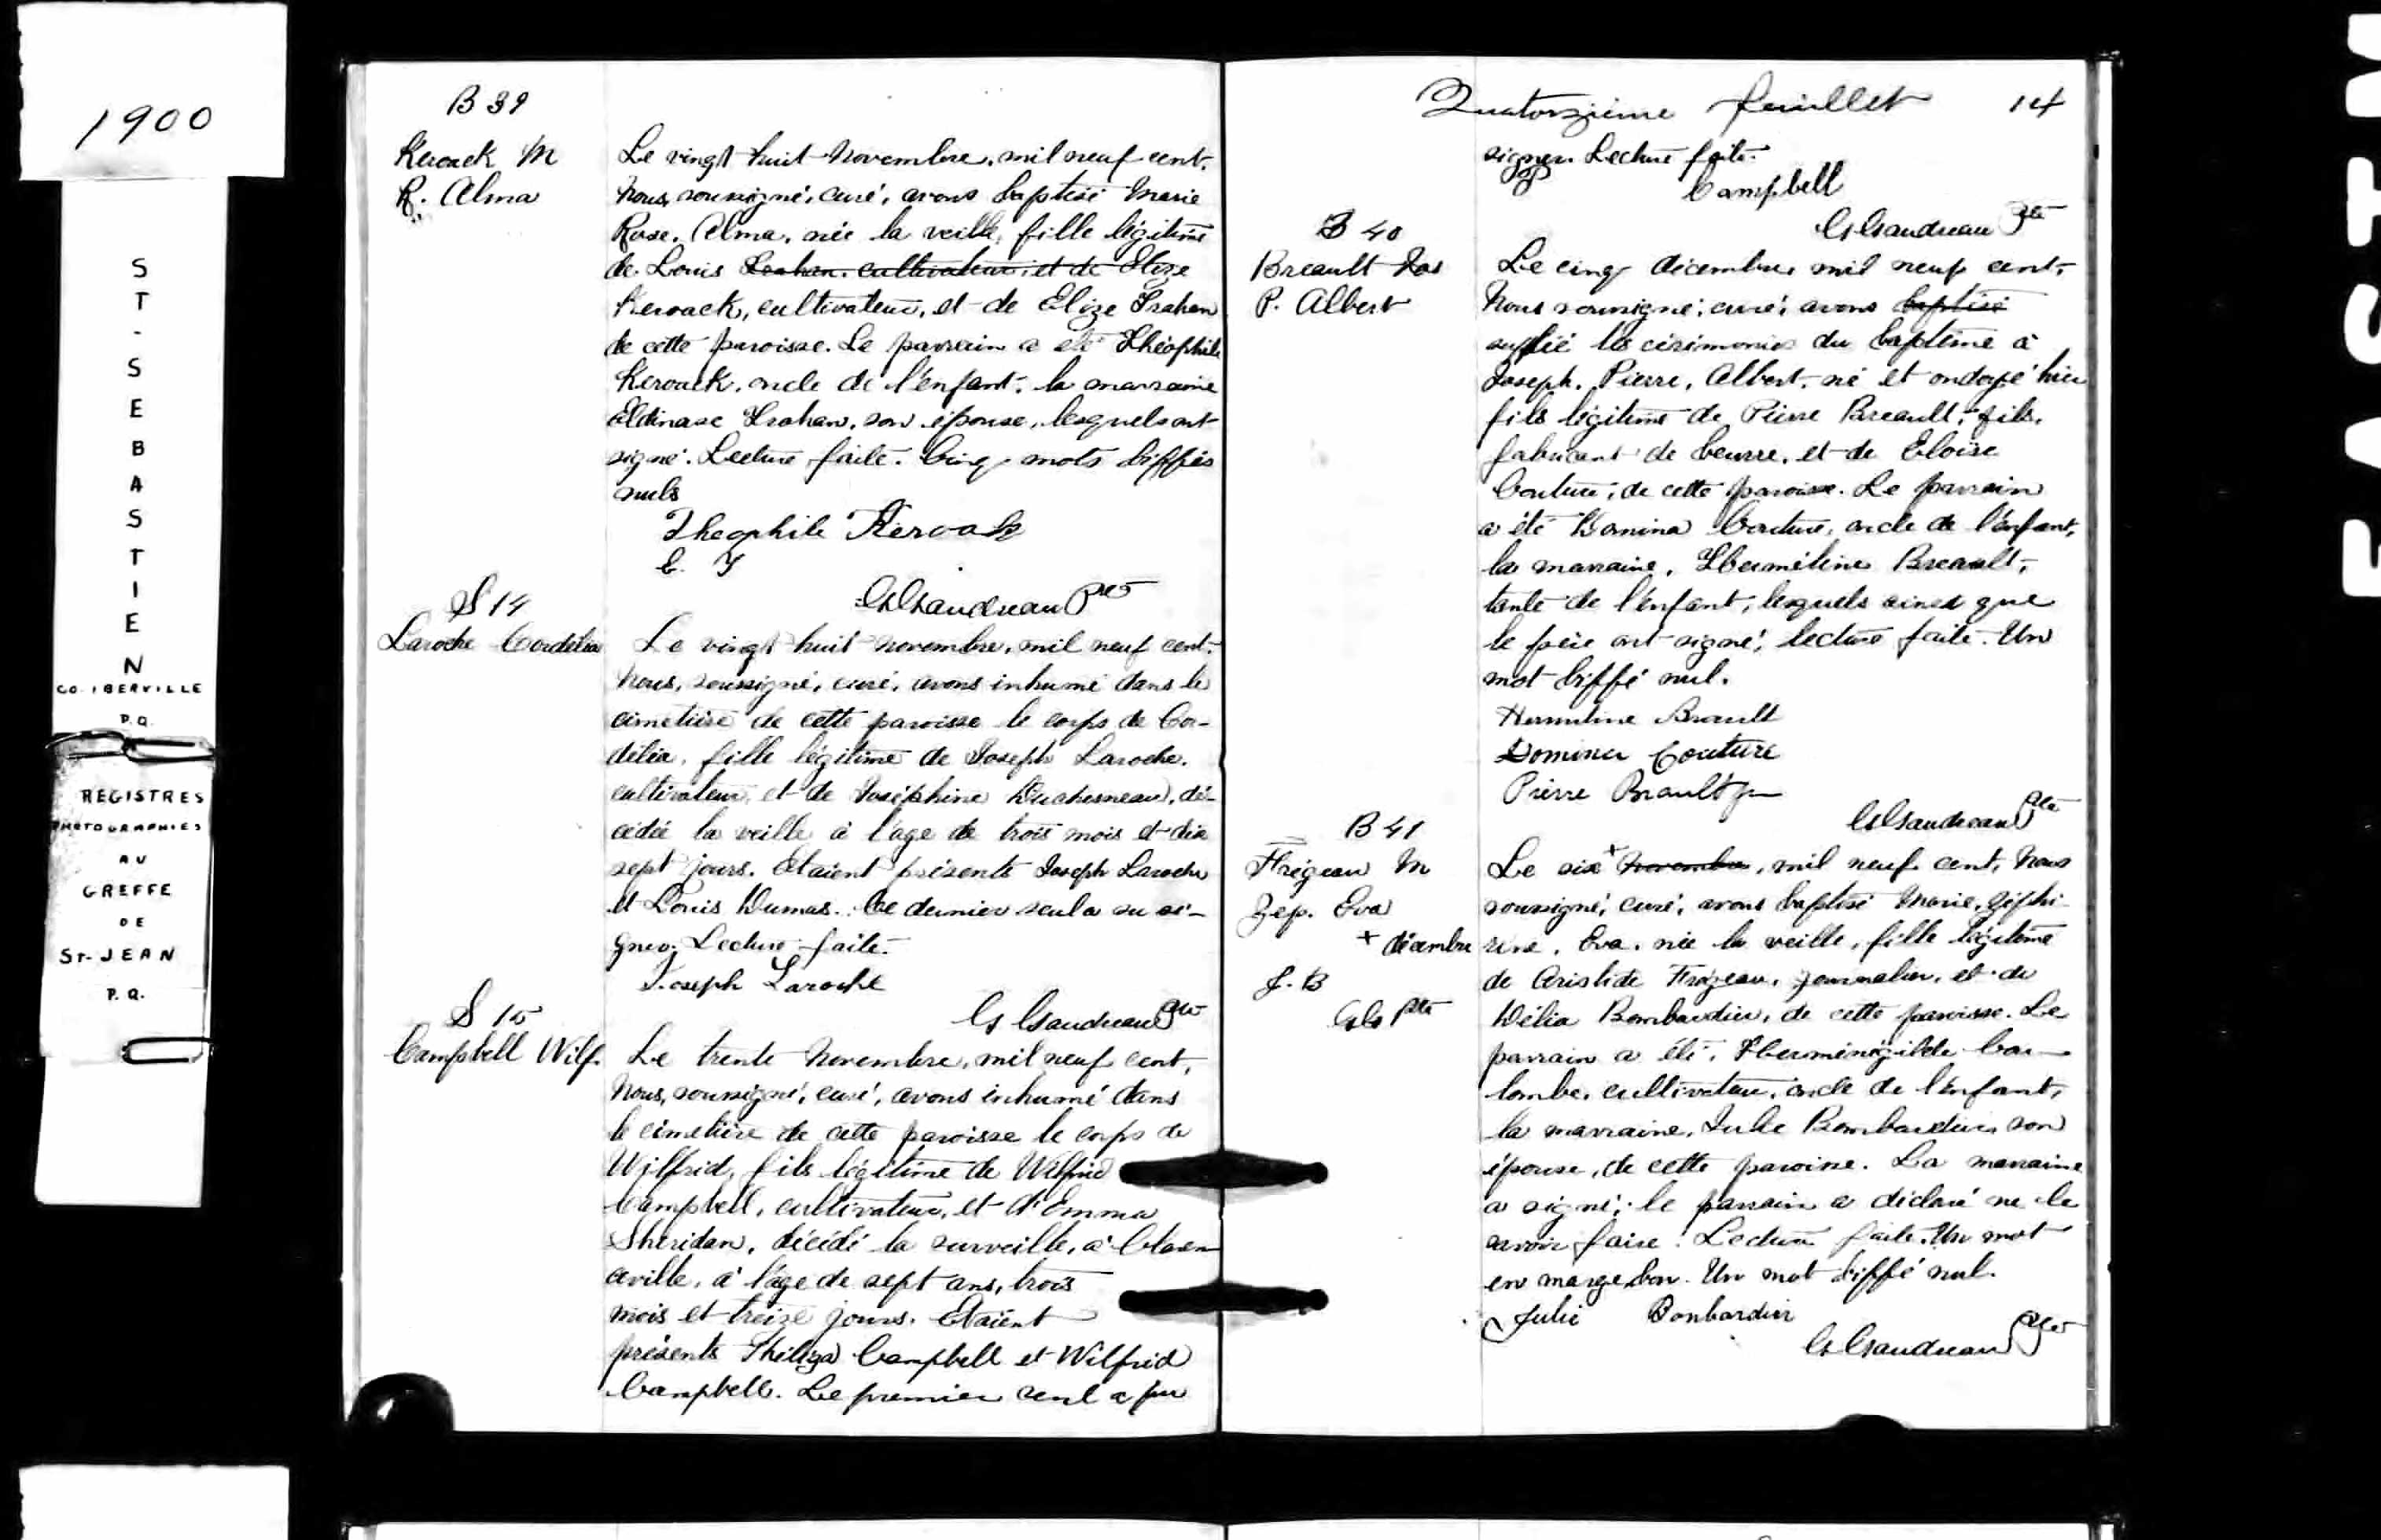 1900
S
T
-
S
E
B
A
S
T
I
E
N
CO. IBERVILLE
P.Q.
REGISTRES
PHOTOGRAPHIES
AU
GREFFE
DE
ST-JEAN
P.Q.
B 39
Kerouack M
R. Alma
Le vingt huit novembre, mil neuf cent,
Nous, soussigné, curé, avons baptisé Marie
Rose, Alma, née la veille, fille légitime
de Louis Trahan, cultivateur, et de Elize
Kerouack, cultivateur, et de Elize Trahan
de cette paroisse. Le parrain a été Théophile
Kerouack, oncle de l'enfant, la marraine
Trahan, son épouse, lesquels ont
signé. Lecture faite. Cinq mots biffés
nuls
Theophile Keroack
E. T
Prêtre
S 14
Laroche Cordélia
Le vingt huit novembre, mil neuf cent,
Nous, soussigné, curé, avons inhumé dans le
cimetière de cette paroisse le corps de Cor-
délia, fille légitime de Joseph Laroche,
cultivateur, et de Joséphine Duchesneau, dé-
cédée la veille à l'age de trois mois et dix
sept jours. Etaient présents Joseph Laroche
et Louis Dumas. Ce dernier seul a su si-
gner. Lecture faite.
Joseph Laroche
S 15
Campbell Wilf.
Le trente novembre, mil neuf cent,
Nous, soussigné, curé, avons inhumé dans
le cimetière de cette paroisse le corps de
Wilfrid, fils légitime de Wilfrid
Campbell, cultivateur, et d'Emma
Sheridan, décédé la surveille, à Claren
ceville, à l'âge de sept ans, trois
mois et treize jours. Etaient
présents Campbell et Wilfrid
Campbell. Le premier seul a pu
Quatorzième feuillet 14
signer. Lecture faite.
Campbell
B 40
Breault Jos
P. Albert
Le cinq décembre mil neuf cent,
Nous soussigné, curé, avons baptisé
suplié les cérémonies du baptême à
Joseph, Pierre, Albert, né et ondoyé hier
fils légitime de Pierre Breault, fils,
fabricant de beurre, et de Eloïse
Couture, de cette paroisse. Le parrain
a été Domina Couture, oncle de l'enfant,
la marraine, Herméline Breault,
tante de l'enfant, lesquels ainsi que
le père ont signé, lecture faite. Un
mot biffé nul.
Hermeline Brault
Domina Couture
Pierre Brault
B 41
Frégeau M
Zep. Eva
+ décembre
J. B
Le six + novembre, mil neuf cent, Nous
soussigné, curé, avons baptisé Marie, Zéphi-
rine, Eva, née la veille, fille légitime
de Aristide Frégeau, journalier, et de
Délia Bombardier, de cette paroisse. Le
parrain a été, Herménégilde Cou-
lombe, cultivateur, oncle de l'enfant,
la marraine, Julie Bombardier son
épouse, de cette paroisse. La marraine
a signé, le parrain a déclaré ne le
savoir faire. Lecture faite. Un mot
en marge bon. Un mot biffé nul.
Julie Bonbardier